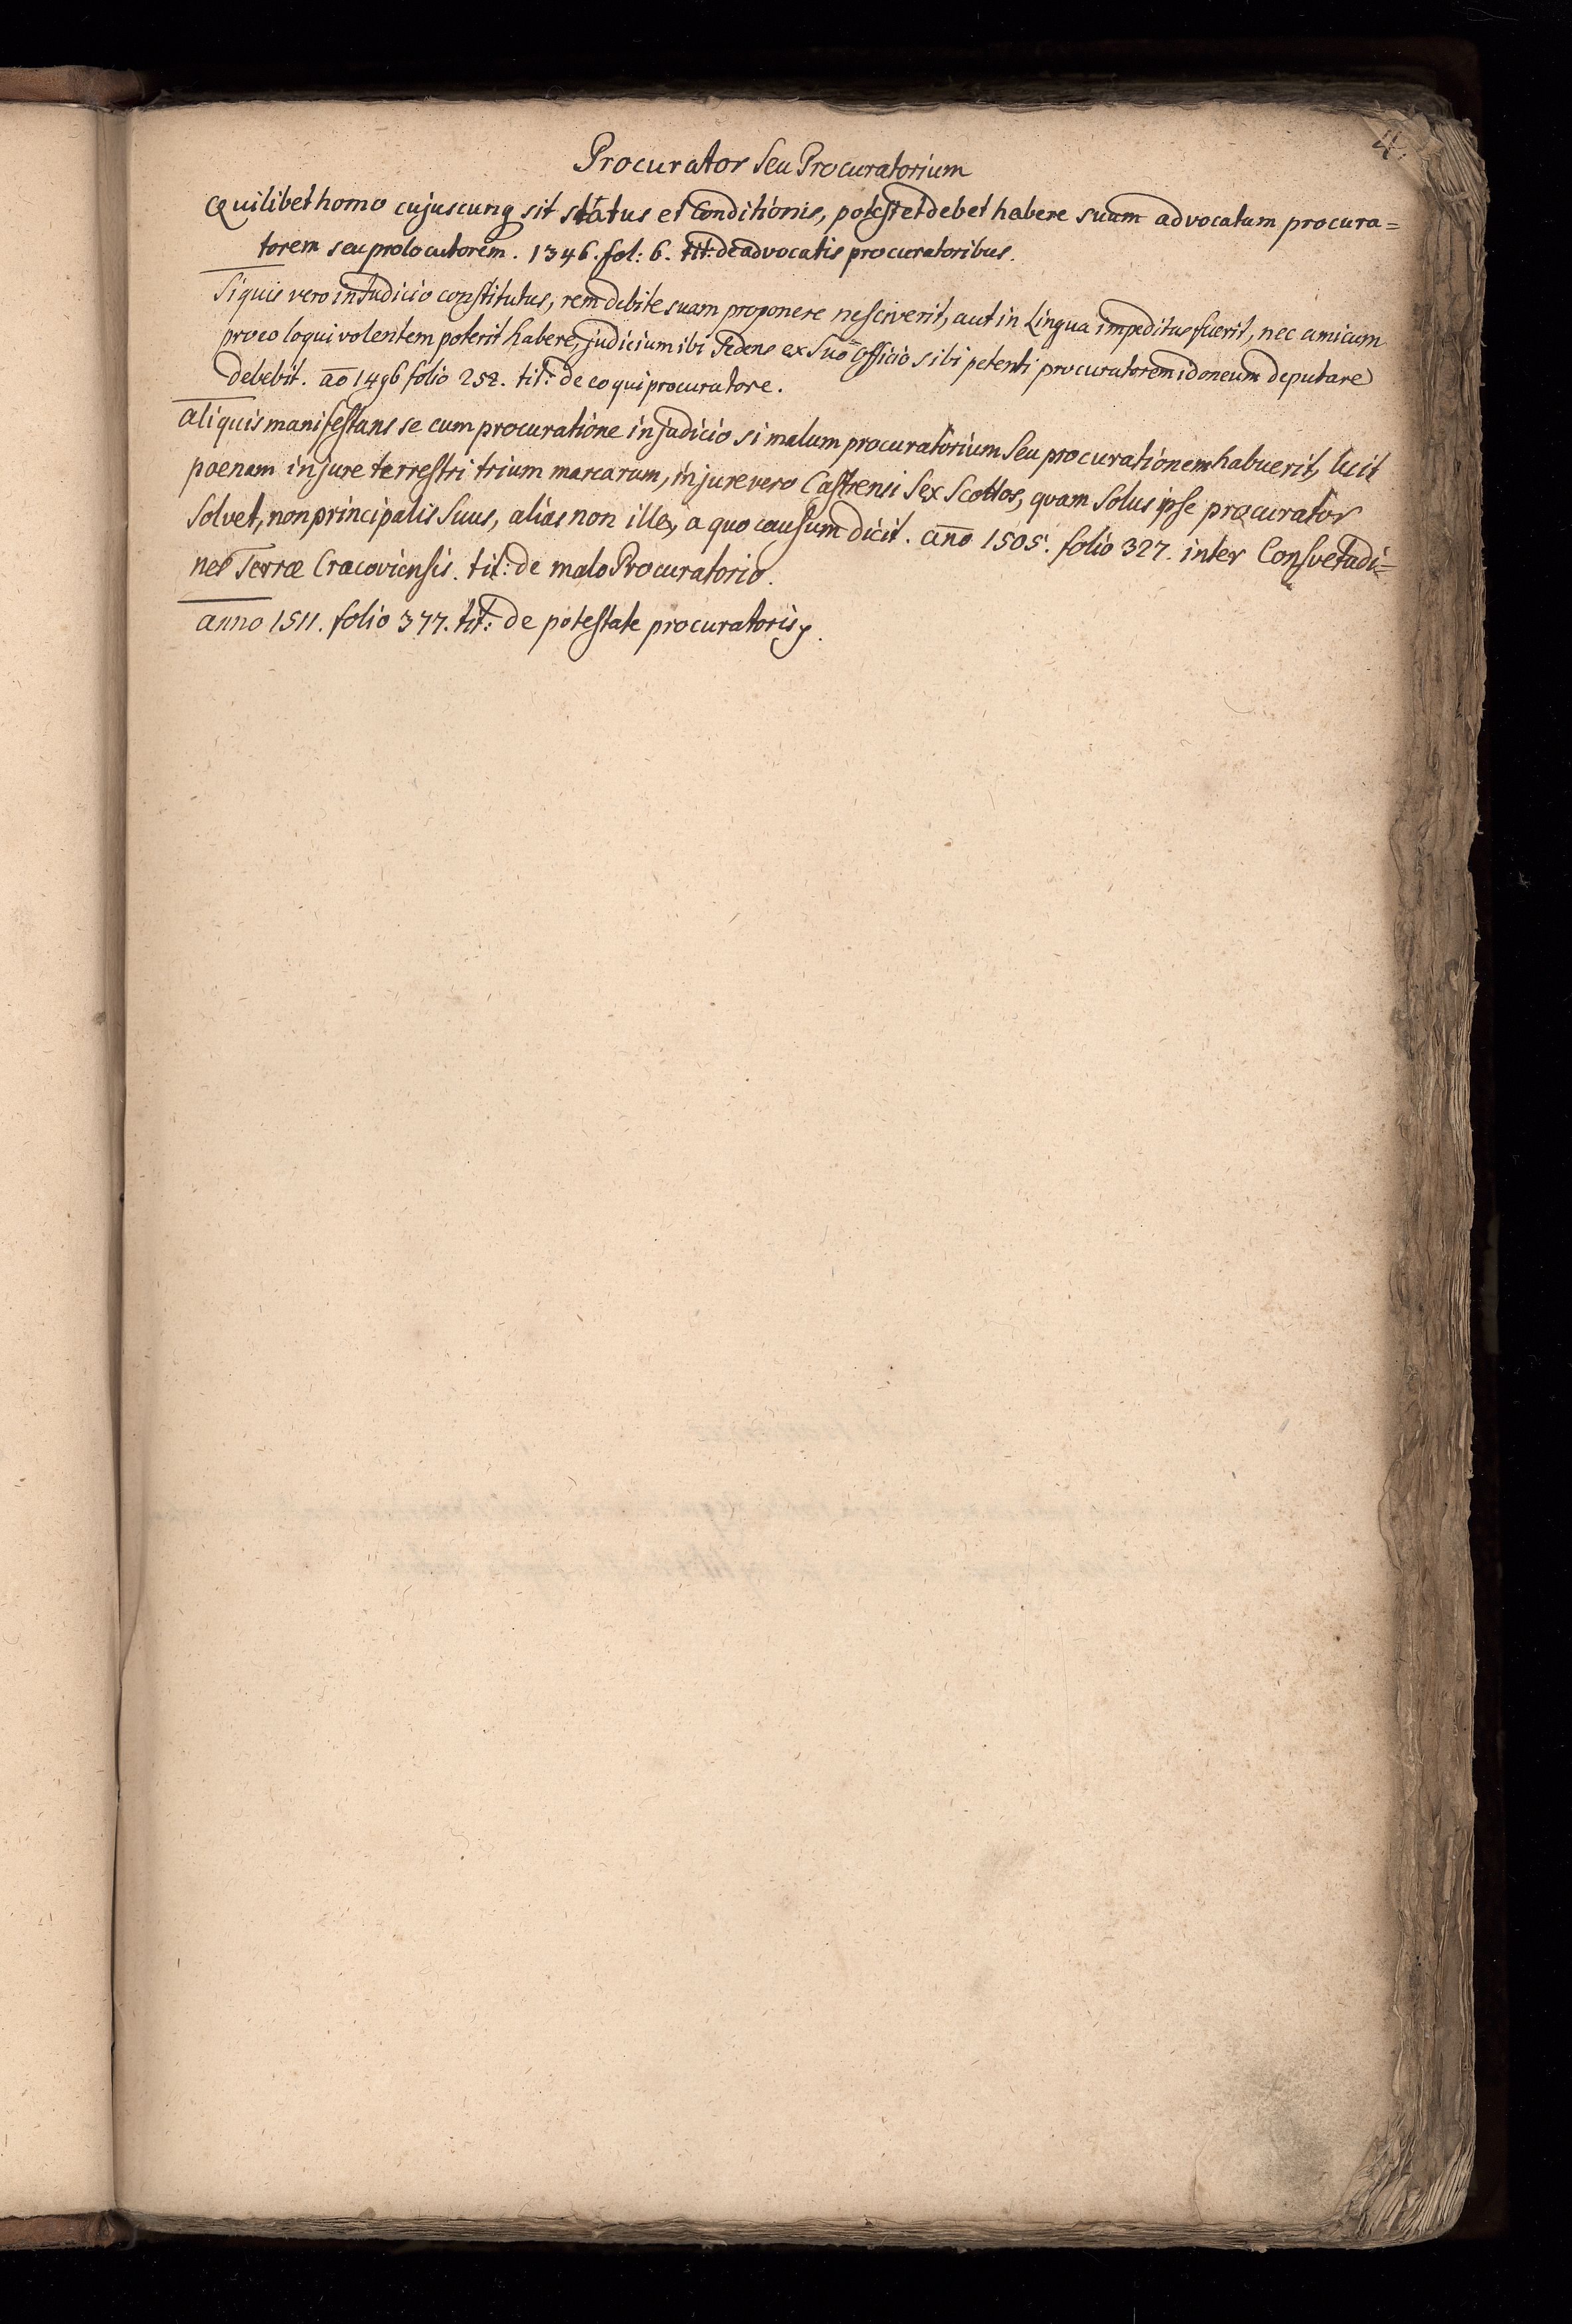 4.
Procurator Seu Procuratorium
Quilibet homo cujuscunq sit status et Conditionis, potest et debet habere suum advocatum procura=
torem seu prolocutorem. 1346. fol: 6. tit: de advocatis procuratoribus.
Si quis vero in Judicio constitutus, rem debite suam proponere nesciverit, aut in Lingua impeditus fuerit, nec amicum
pro eo loqui volentem poterit habere, judicium ibi Sedens ex Suo Officio sibi petenti procuratorem idoneum deputare
debebit. ao 1496 folio 252. tit: de eo qui procuratore.
aliquis manifestans se cum procuratione in judicio si malum procuratorium Seu procurationem habuerit, lucit
poenam in jure terrestri trium marcarum, in jure vero Castrensi Sex Scottos, quam Solus ipse procurator
Solvet, non principalis Suus, alias non ille, a quo causum dicit. año 1505. folio 327. inter Consvetudi=
nes Terræ Cracoviensis. tit: de malo Procuratorio.
anno 1511. folio 377. tit: de potestate procuratoris.